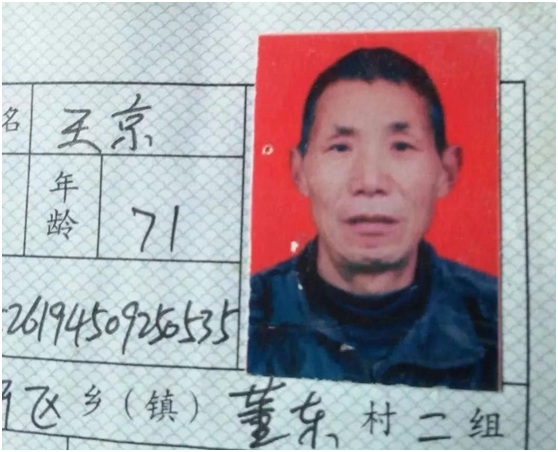 名 王京
年龄 71
26194509250535
区乡（镇）董东村二组